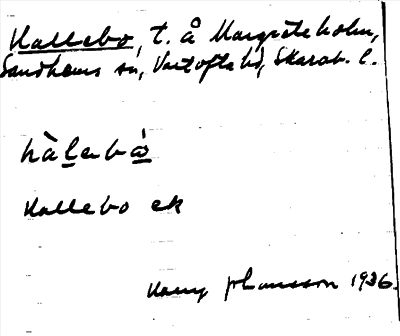 Kallebo, t. å Margreteholm,
Sandhems sn, Vartofta hd, Skarab. l.
kàlebò
Kallebo ek
Johansson 1936.